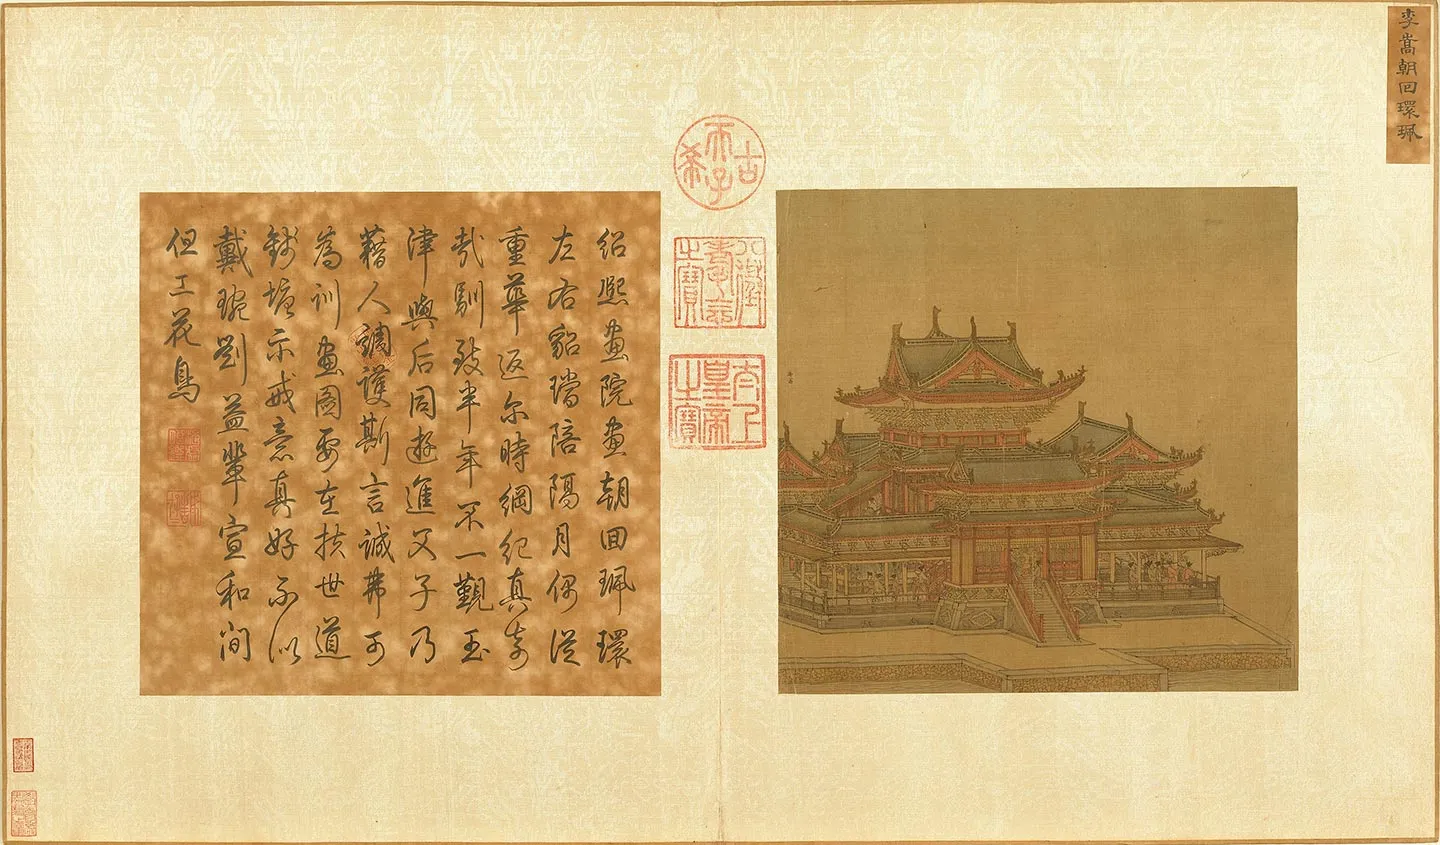 李嵩朝回環珮
古稀天子
八徵耄念之寶
太上皇帝之寶
紹熙畫院畫朝回珮環
左右貂璫陪隔月偶從
重華返尔時綱紀真奇
哉馴致半年不一覲玉
津與后同遊進父子乃
藉人調護斯言誠弗可
為訓畫圖要在扶世道
錢塘示戒意真好不似
戴琬劉益輩宣和間
但工花鳥